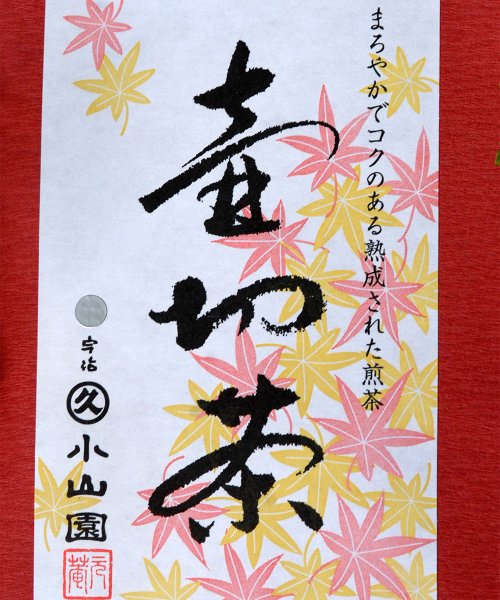 まろやかでコクのある熟成された煎茶
壷切茶
宇治
久
小山園
元庵